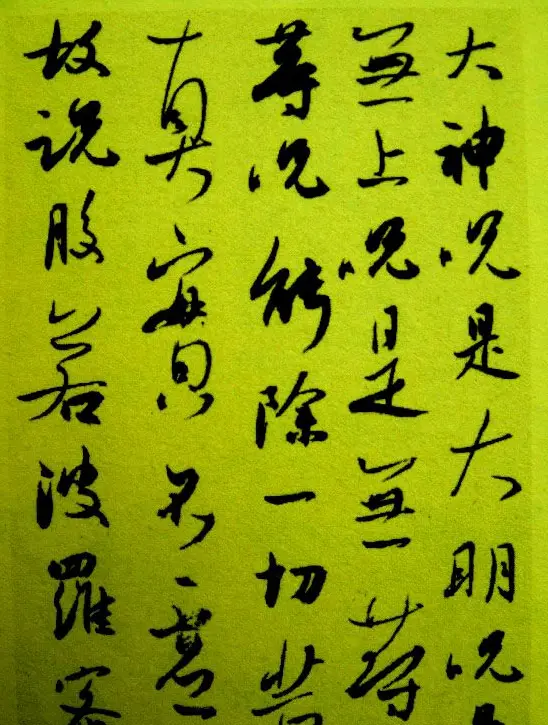 大神呪是大明呪
無上呪是無等
等呪能除一切苦
真實不虛
故說般若波羅